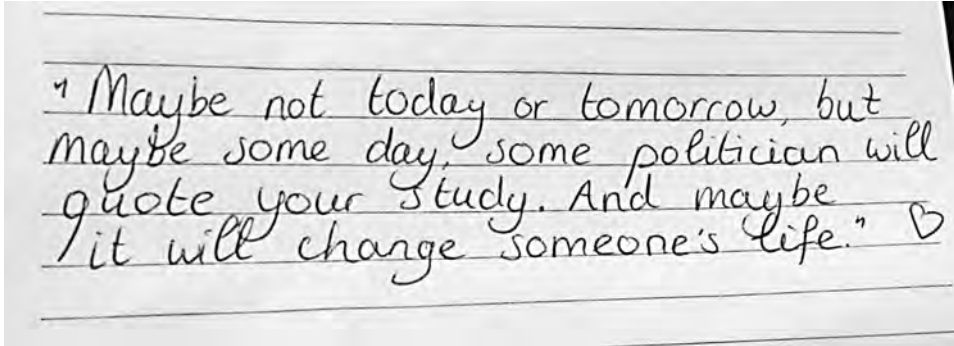 "Maybe not today or tomorrow, but
maybe some day, some politician will
quote your study. And maybe
it will change someone's life." ♡